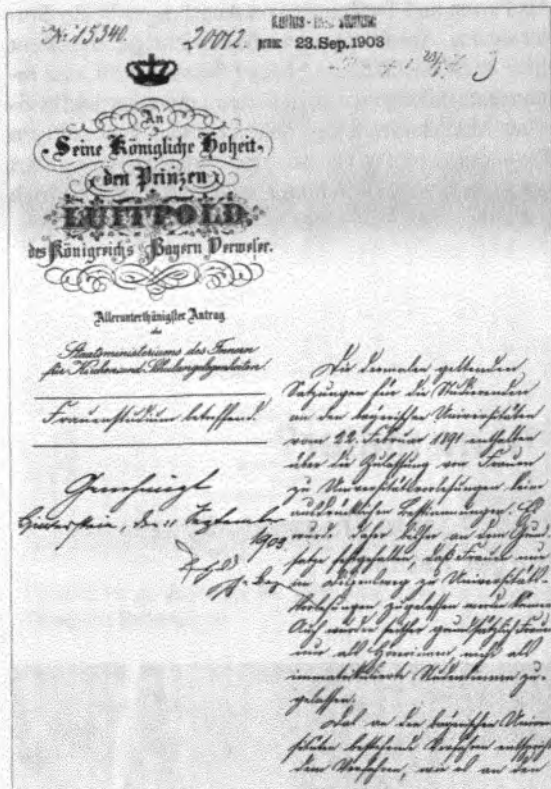 Nr. 15340.
20012
23. Sep. 1903
An
Seine Königliche Hoheit
den Prinzen
LUITPOLD,
des Königreichs Bayern Verweser.
Allerunterthänigster Antrag
des
Staatsministeriums des Innern
für Kirchen und Schulangelegenheiten
Frauenstudium betreffend.
Genehmigt
Hinterstein, den 11 September
1903
Die dermalen geltenden
Satzungen für die Studierenden
an den bayerischen Universitäten
vom 22. Februar 1891 enthalten
über die Zulassung von Frauen
zu Universitätsvorlesungen keine
ausdrücklichen Bestimmungen. Es
wurde daher bisher an dem Grund-
satze festgehalten, daß Frauen nur
im zu Universitäts-
Vorlesungen zugelassen werden können.
Auch wurden seither grundsätzlich Frauen
nur als Hörerinnen, nicht als
immatrikulierte Studentinnen zu-
gelassen.
Das an den bayerischen Univer-
sitäten bestehende Verfahren entspricht
dem Verfahren, wie es an den